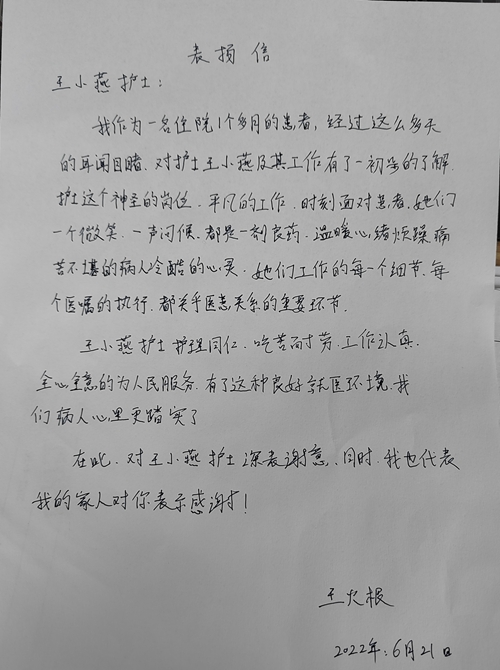 表损信
王小燕护士：
我作为一名住院1个多月的患者，经过这么多天
的耳闻目睹．对护士王小燕及其工作有了一初步的了解．
护士这个神圣的岗位．平凡的工作．时刻面对患者．她们
一个微笑．一声问候．都是一剂良药．温暖心绪烦躁病
苦不堪的病人冷酷的心灵．她们工作的每一个细节．每
个医嘱的执行．都关乎医患关系的重要环节．
王小燕护士护理同仁．吃苦而才劳．工作认真．
全心全意的为人民服务．有了这种良好就医环境．我
们病人心里更踏实了
在此．对王小燕护士深表谢意．同时．我也代表
我的家人对你表示感谢！
王火根
2022年．6月21日